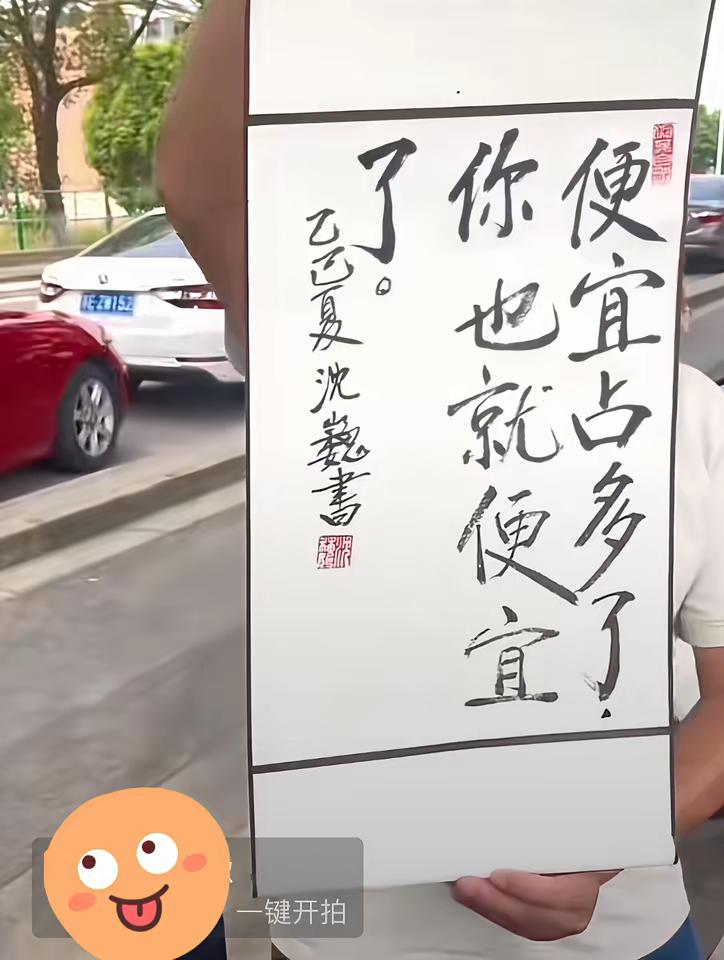 便宜占多了，
你也就便宜
了。
乙巳夏沈巍書
沈巍
一键开拍